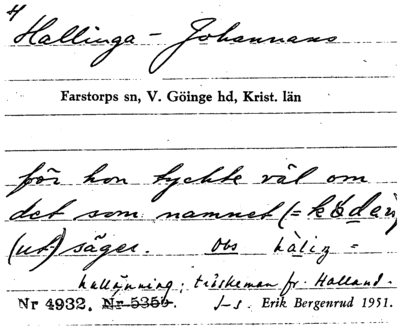 Hallinga - Johannans
Farstorps sn, V. Göinge hd, Krist. län
för hon tyckte väl om
det som namnet (=
(ut) säger. Obs hälig =
hallänning; träskeman fr. Halland.
Nr 4932. Nr 5359. J-s. Erik Bergenrud 1951.